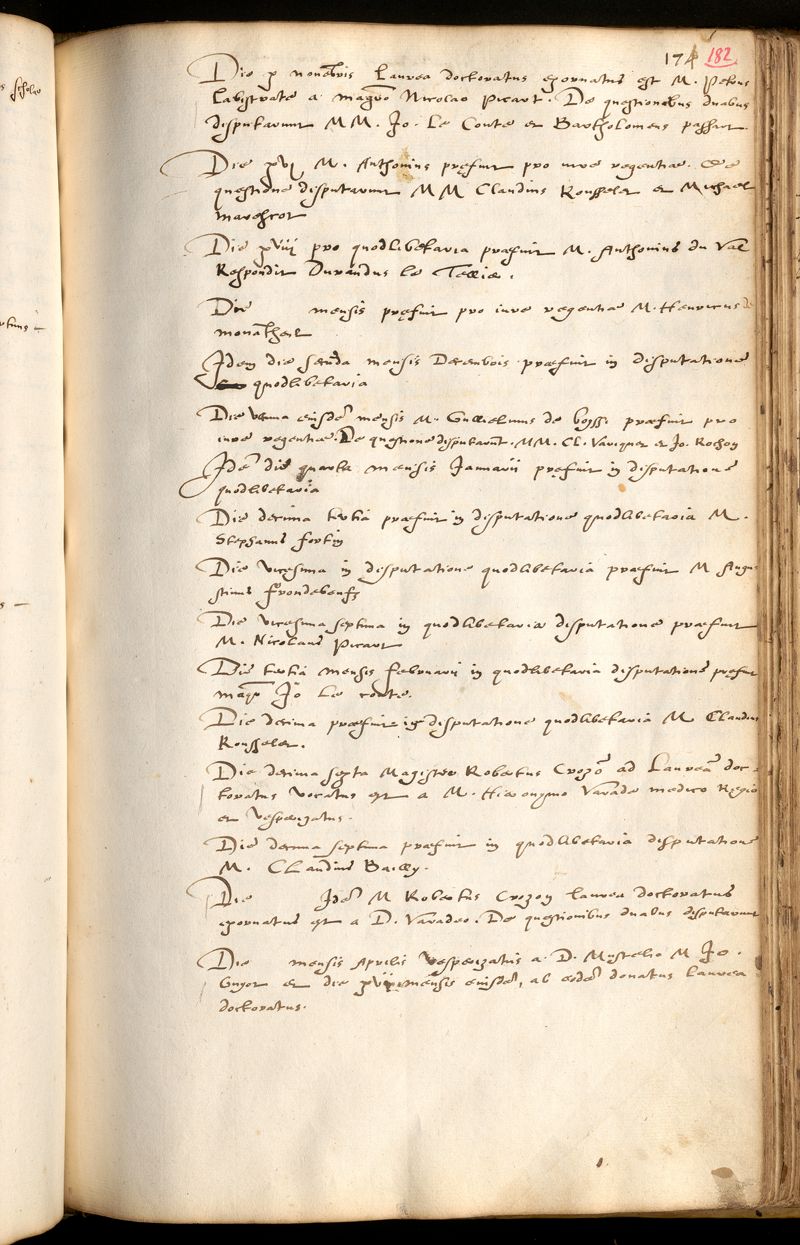 174 182
Die x novembris Laurea doctoratus exornatus est M. Petrus
Labistrate a magro Nicolao Picart. De quęstionibus duabus
disputarunt MM. Jo. Le Conte et Bartholomeus
Die xvj M. Anthonius pręfuit pro iure regentiae. De
quęstione disputarunt MM Claudius Rousselet et Michael
Marescot
Die xviij pro quodlibetaria praefuit M. Anthonius du Val
Respondit Durandus le Tellie.
Die mensis pręfuit pro iure regentiae M. Henricus de
monantheil
Idem die secunda mensis Decembris praefuit in disputatione
quodlibetaria
Die eiusdē mensis M. Gulielmus de praefuit pro
iure regentiae. De quęstione disputarūt. MM. Cl. et Jo. Rochon
Idē die quarta mensis Januarii pręfuit in disputatione
quodlibetaria
Die decima tertia praefuit in disputatione quodlibetaria M.
Stephanus fortin
Die vicesima in disputatione quodlibetaria praefuit M Augu
stinus
Die vicesima septima in quodlibetaria disputatione praefuit
M. Nicolaus Picart
Die tertia mensis februarii in quodlibetaria disputatione pręfuit
magr Jo Le conte.
Die decima praefuit in disputatione quodlibetaria M Claudius
Rousselet.
Die decima sexta Magister Robertus Crozō ad Laureā doc-
toratus vocatus est a M. Hieronymo Varade medico Regio
et vesperizatus.
Die decima septima praefuit in quodlibetaria disputatione
M. CLaudius Bailly.
Die Idē M Robertus Crozon laurea doctoratus
exornatus est a D. Varadeo. De quęstionibus duabus disputarunt
Die mensis Aprilis vesperizatus a D. Mustelio M Jo.
Guyot et die mensis eiusdē, ab eodē donatus laurea
doctoratus.